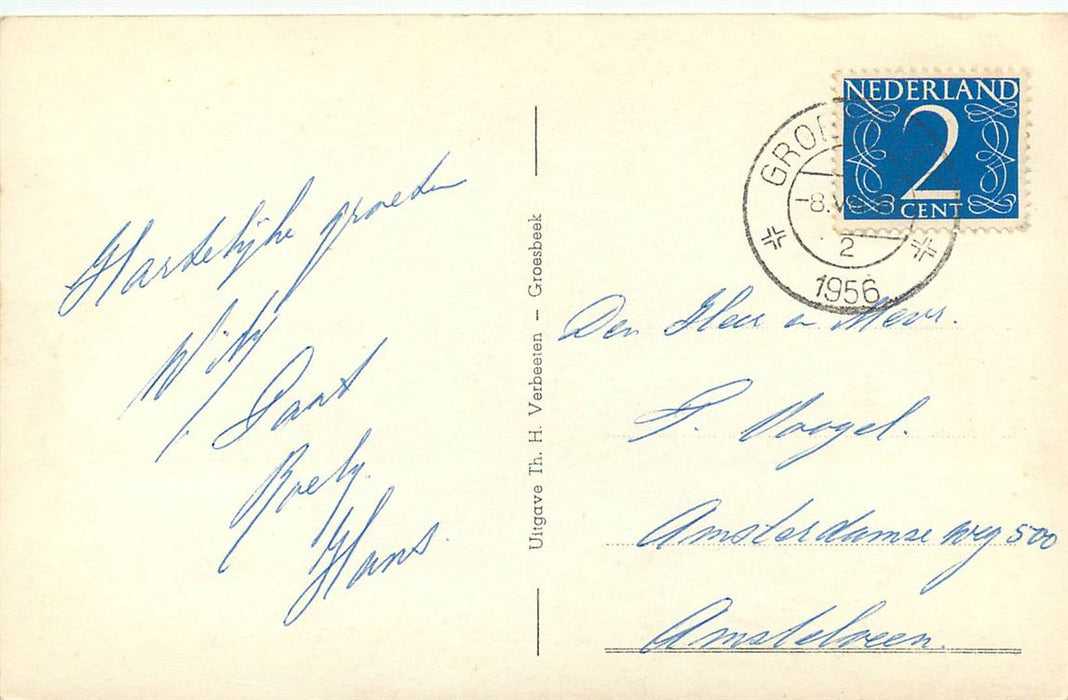 Hartelijke groeten
Willy
Daan
Roely.
Hans.
Uitgave Th. H. Verbeeten – Groesbeek
NEDERLAND
2
CENT
GROE
-8.V
2
1956
Den Heer en Mevr.
P. Voogel.
Amsterdamseweg 500
Amstelveen.